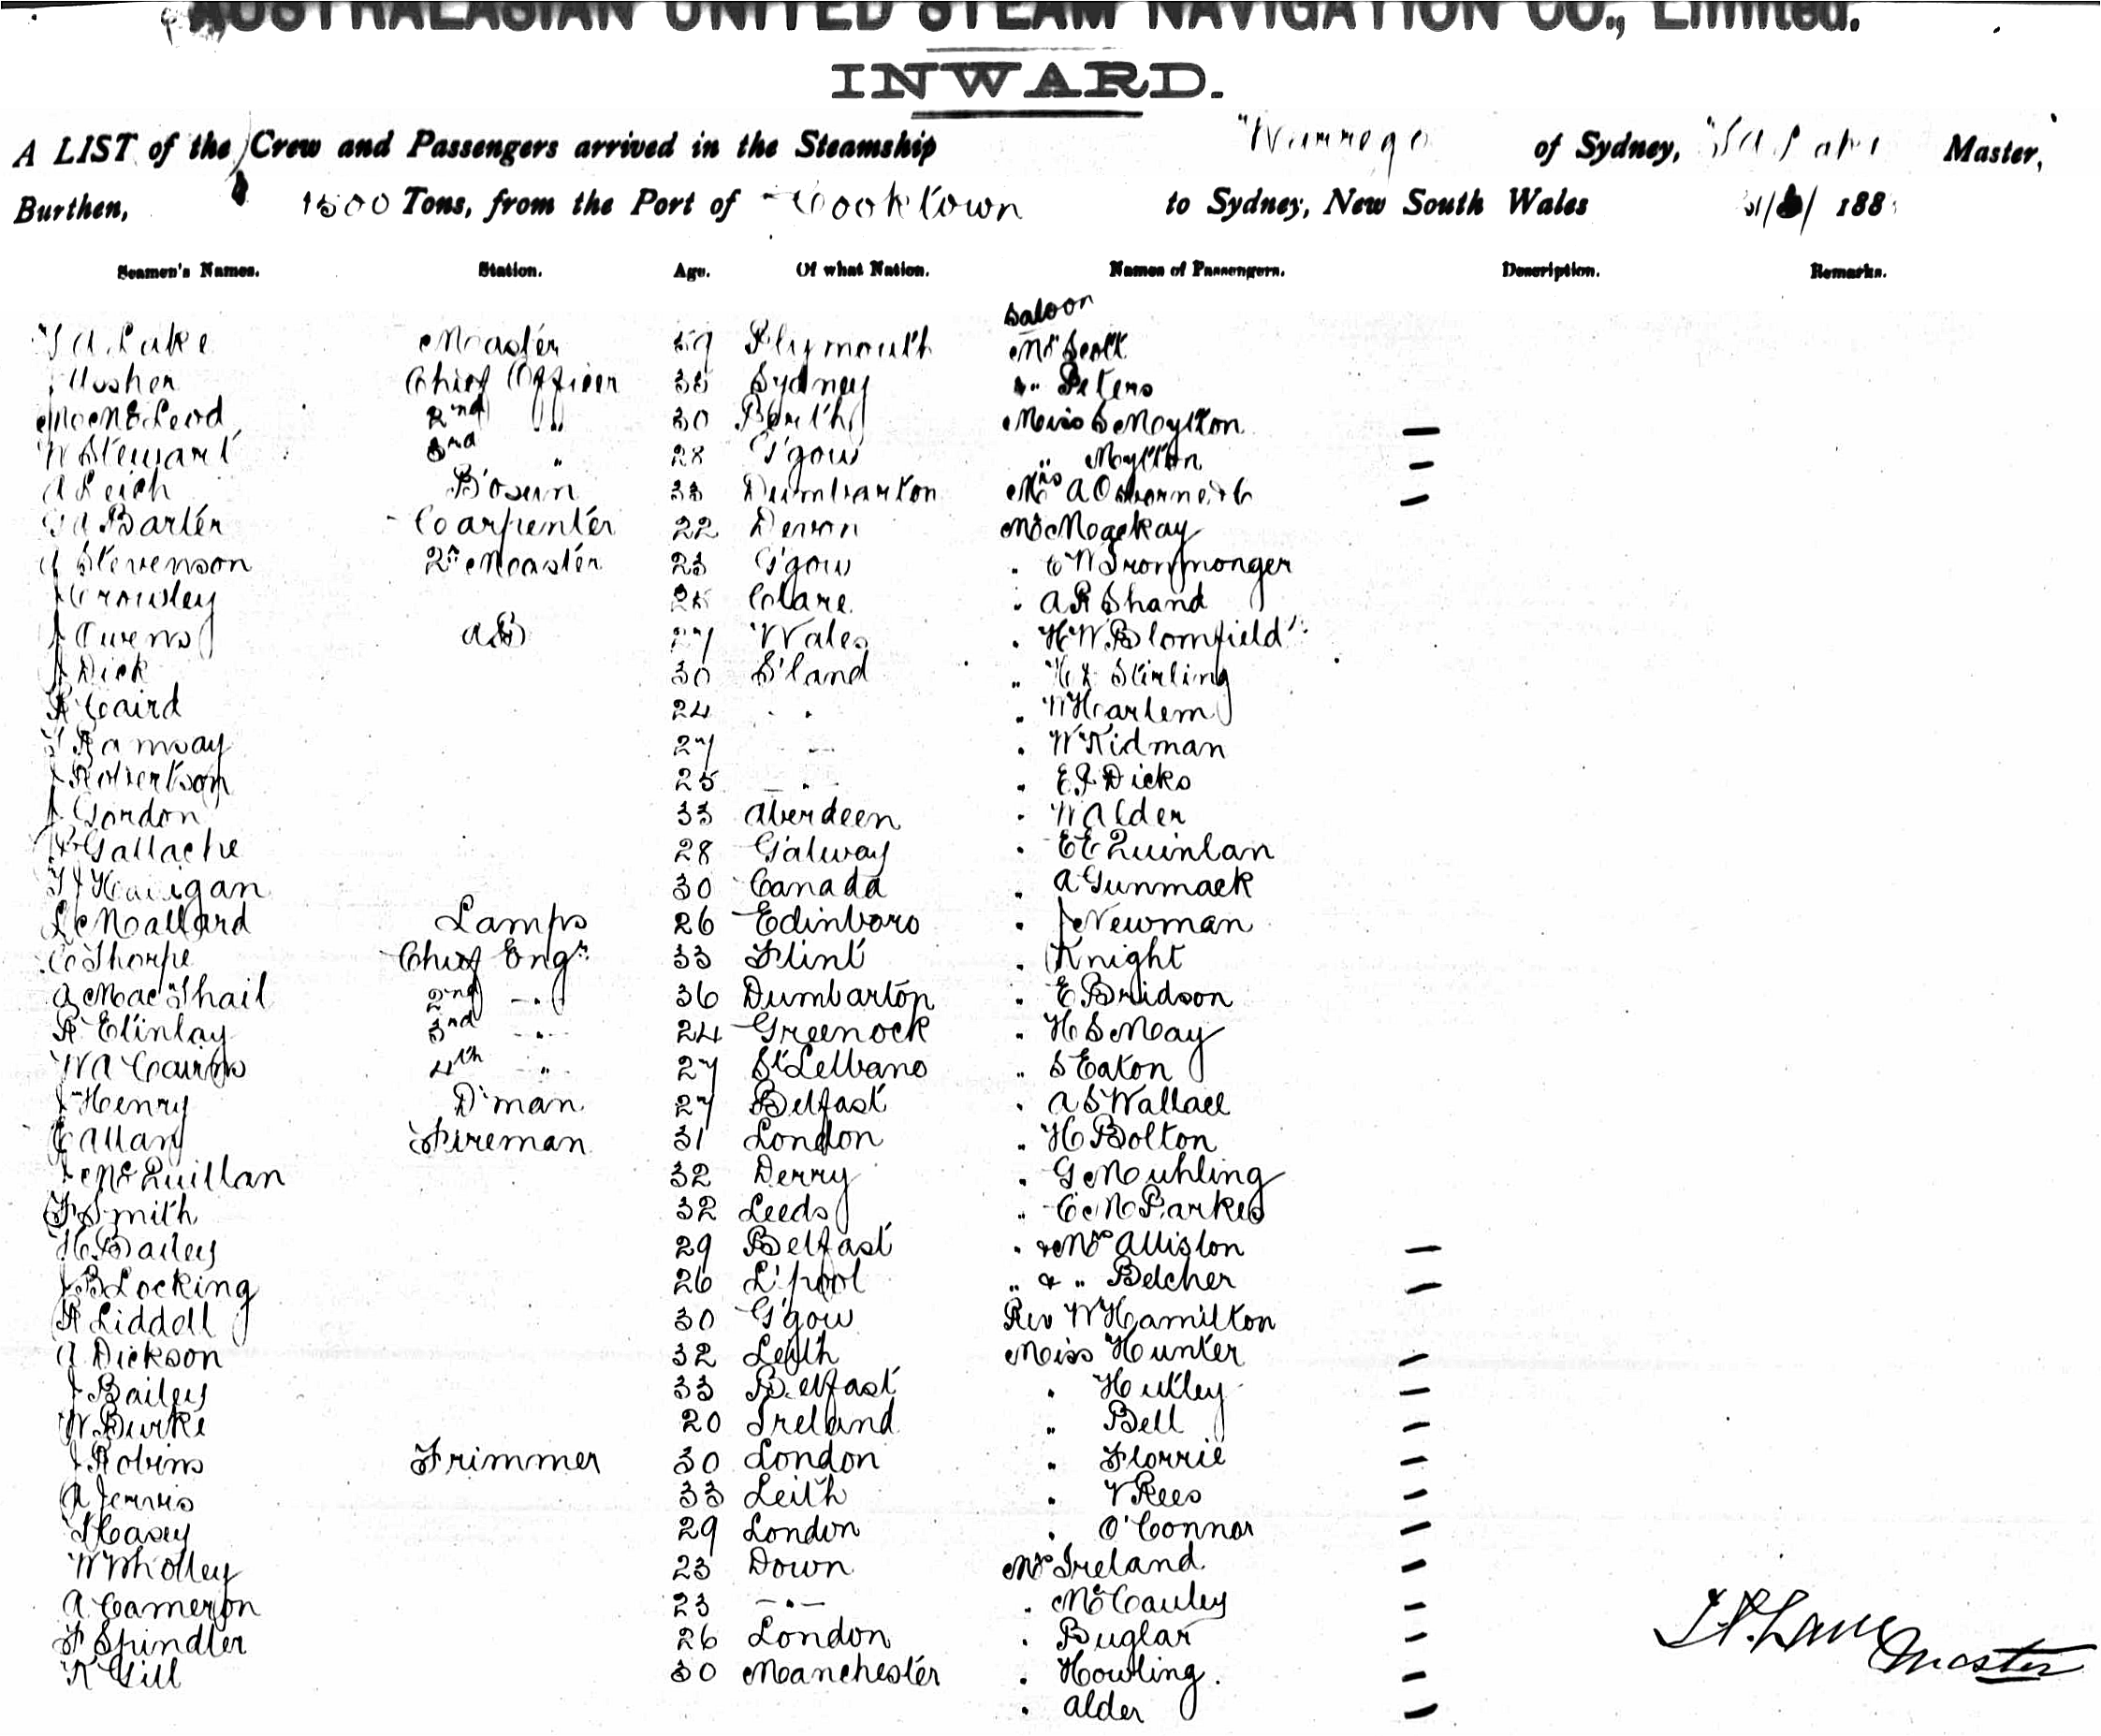 AUSTRALASIAN UNITED STEAM NAVIGATION CO., Limited.
INWARD.
A LIST of the Crew and Passengers arrived in the Steamship "Warrego of Sydney, Master,
Burthen, 1500 Tons, from the Port of Cooktown to Sydney, New South Wales 188
Seamen's Names. Station. Age. Of what Nation. Names of Passengers. Description. Remarks.
Saloon
Lake Master 59 Plymouth Mr Scott
Chief Officer Sydney " Peters
McLeod 2nd " 30 Perth Miss S Mylton —
W Stewart 3rd " 28 G'gow " Mylton —
A Leich Bosun 33 Dumbarton Mrs A Osborne —
Barter Carpenter 22 Devon Mr Mackay
Stevenson 2r Master 23 G'gow " C W Ironmonger
J Crowley Clare " A R Shand
J Owens AB 27 Wales " H W Blomfield
J Dick 30 S'land " Stirling
R Caird 24 " " W Harlem
Ramsay 27 " " W Kidman
J Robertson 25 " " E J Dicks
J Gordon 33 Aberdeen " W Alder
P Gallache 28 Galway " E E Quinlan
30 Canada " A Gunmack
L Mallard Lamps 26 Edinboro " J Newman
C Thorpe Chief Engr 33 Flint " Knight
A MacPhail 2nd " 36 Dumbarton " E Bridson
R 3rd " 24 Greenock " H S May
W A Cairns 4th " 27 St " S Eaton
J Henry D'man 27 Belfast " A S Wallace
C Allan Fireman 31 London " H Bolton
J McQuillan 32 Derry " G Muhling
F Smith 32 Leeds " C M Parkes
H Bailey 29 Belfast " & Mrs Alliston —
J B Locking 26 L'pool " & " Belcher —
R Liddell 30 G'gow Rev W Hamilton
A Dickson 32 Leith Miss Hunter —
J Bailey 33 Belfast " Hutley —
W Burke 20 Ireland " Bell —
J Robins Trimmer 30 London " Florrie —
A Jervis 33 Leith " V Rees —
Casey 29 London " O'Connor —
W Wholley 23 Down Mrs Ireland —
A Cameron 23 — " — " McCauley —
F Spindler 26 London " Buglar —
R Gill 30 Manchester " Howling —
" Alder —
Master